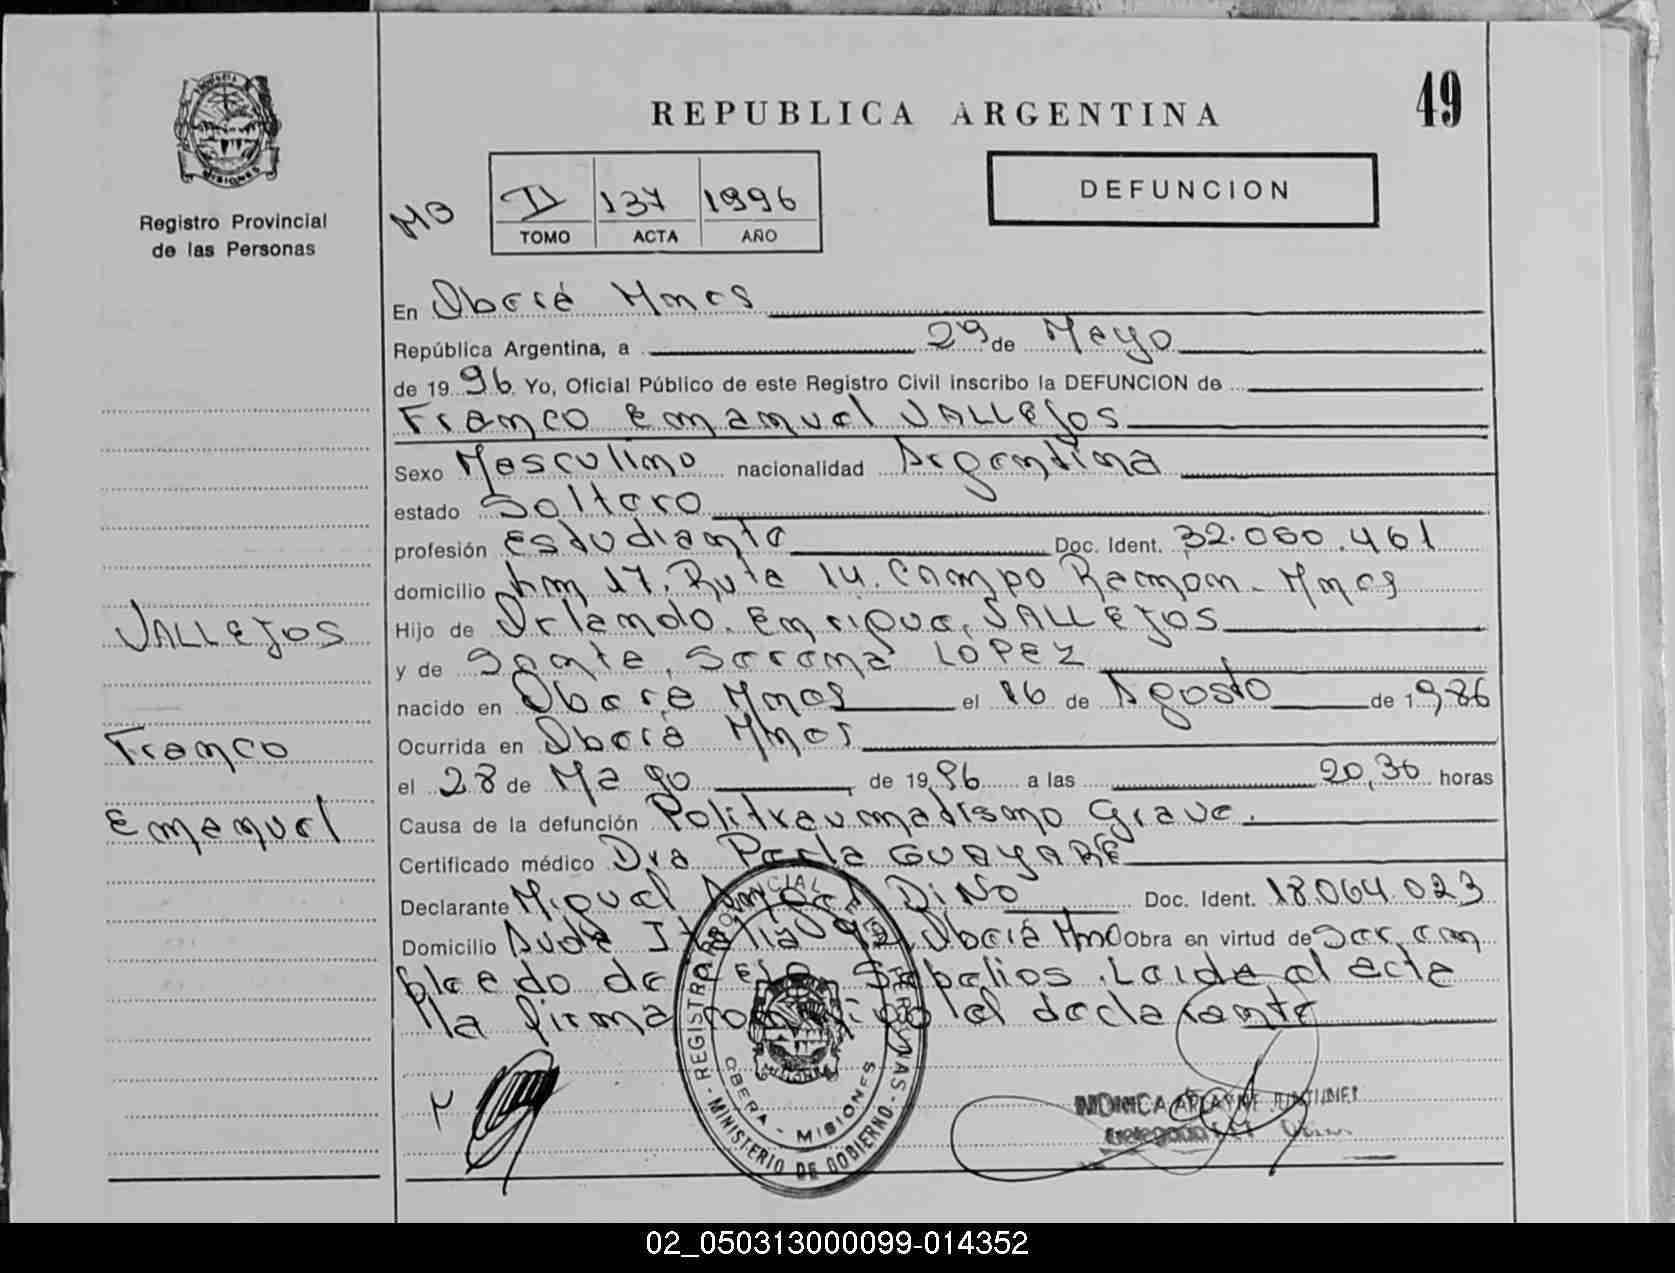 REPUBLICA ARGENTINA
49
PROVINCIA MISIONES
Registro Provincial
de las Personas
II 137 1996
TOMO ACTA AÑO
DEFUNCION
En Oberá Mnes
República Argentina, a 29 de Mayo
de 1996 Yo, Oficial Público de este Registro Civil inscribo la DEFUNCION de
Franco Emanuel VALLEJOS
Sexo Masculino nacionalidad Argentina
estado Soltero
profesión Estudiante Doc. Ident. 32.060.461
domicilio km 17, Ruta 14. Campo Ramón - Mnes
Hijo de Orlando. Enrique, VALLEJOS
y de LOPEZ
nacido en Oberá Mnes el 16 de Agosto de 1986
Ocurrida en Oberá Mnes
el 28 de Mayo de 1996 a las 20,30 horas
Causa de la defunción Politraumatismo Grave.
Certificado médico Dra Perla GUAYARÉ
Declarante Miguel DiNo Doc. Ident. 18.064.023
Domicilio Avda Italia Oberá Mnes Obra en virtud de Ser, em
pleado de Sepelios. Leida el acta
la firma conmigo el declarante
VALLEJOS
Franco
Emanuel
REGISTRO PROVINCIAL DE LAS PERSONAS
OBERA - MISIONES
- MINISTERIO DE GOBIERNO -
MONICA
02_050313000099-014352